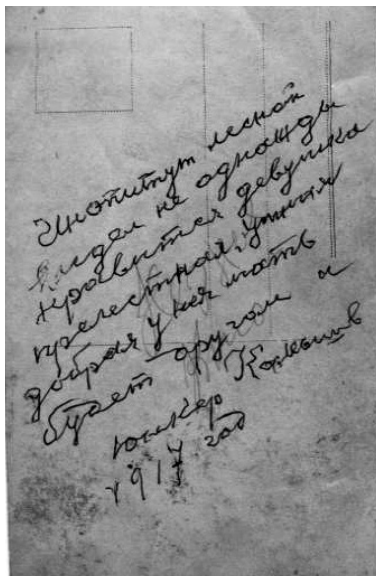 Институт лесной
видел не однажды
нравится девушка
прелестная, умная
добрая у ней мать
будет другом и
Юнкер
1917 год